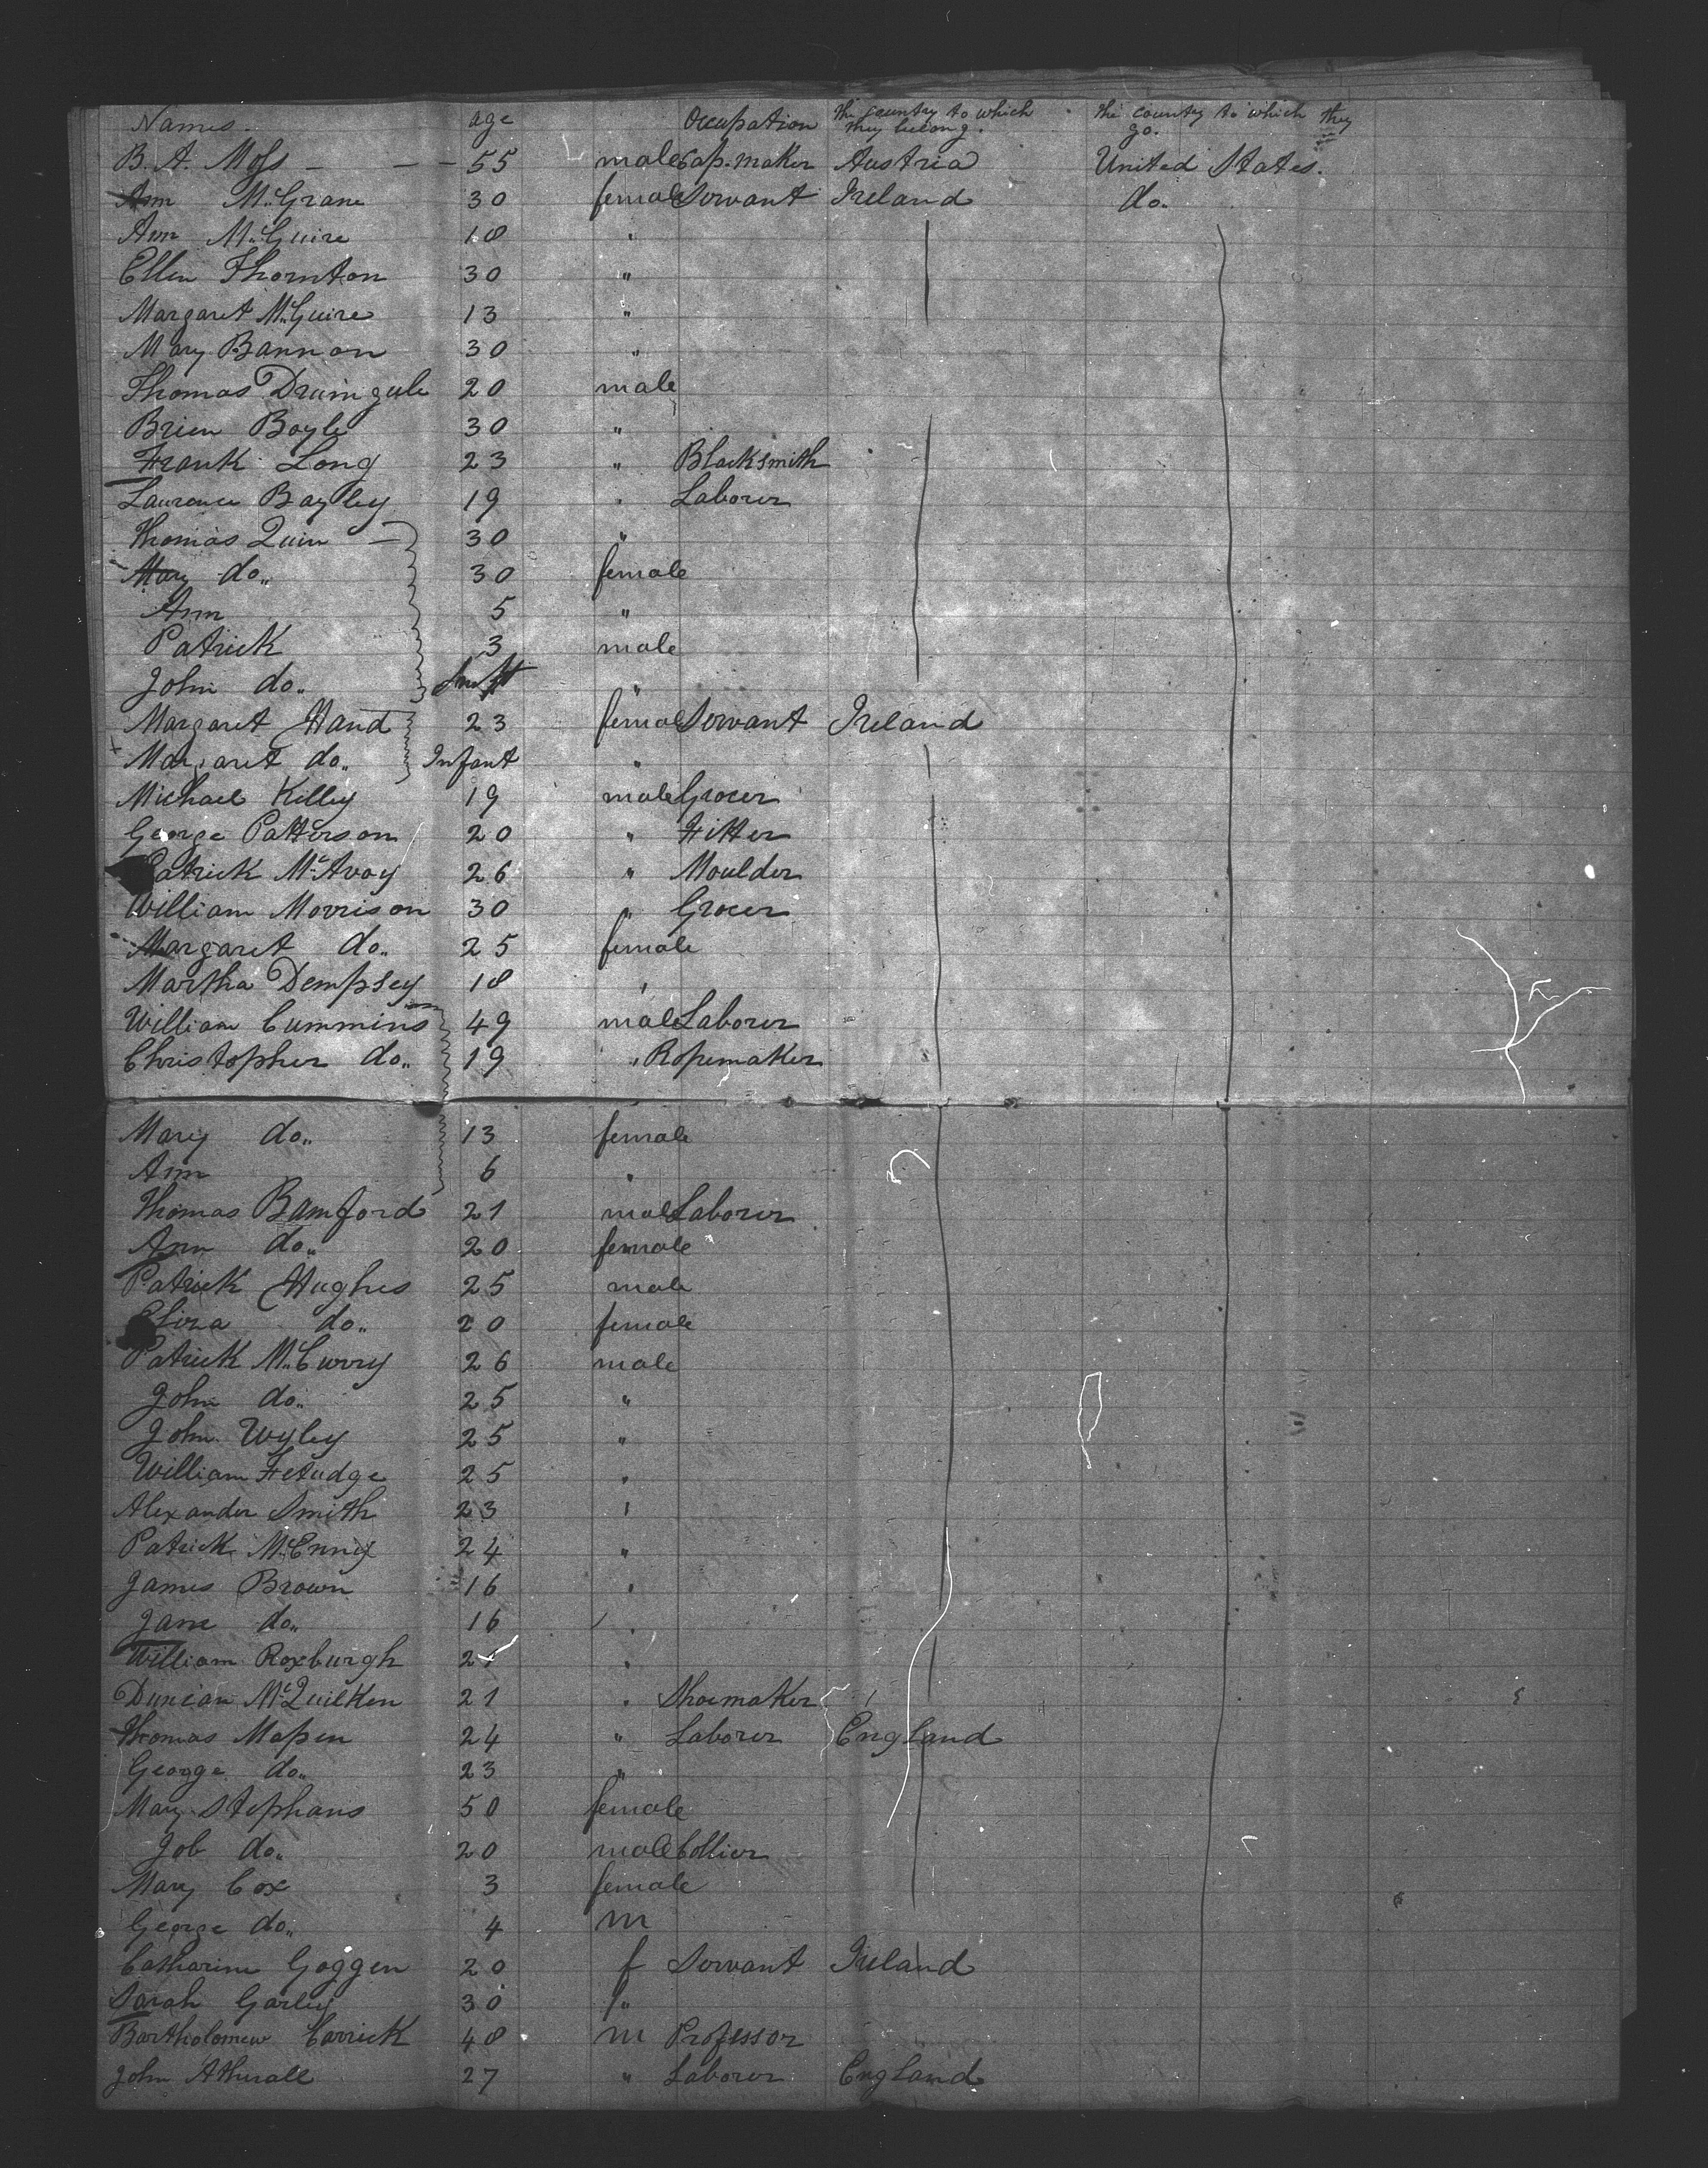 Names. age Occupation the country to which they belong. the country to which they go.
B. A. Moss — — — 55 male Cap-maker Austria United States.
Ann McGrane 30 female Servant Ireland do.
Ann McGuire 18 "
Ellen Thornton 30 "
Margaret McGuire 13 "
Mary Bannon 30 "
Thomas Drumgule 20 male
Brien Boyle 30 "
Frank Long 23 " Blacksmith
Laurence Bayley 19 " Laborer
Thomas Quin — 30 "
Mary do.. 30 female
Ann 5 "
Patrick 3 male
John do.. Inft "
Margaret Hand 23 female Servant Ireland
Margaret do.. Infant "
Michael Killey 19 male Grocer
George Patterson 20 " Fitter
Patrick McAvoy 26 " Moulder
William Morrison 30 " Grocer
Margaret do.. 25 female
Martha Dempsey 18 "
William Cummins 49 male Laborer
Christopher do.. 19 " Ropemaker
Mary do.. 13 female
Ann 6 "
Thomas Bamford 21 male Laborer
Ann do.. 20 female
Patrick Hughes 25 male
Eliza do.. 20 female
Patrick McCurry 26 male
John do.. 25 "
John Wyley 25 "
William Fetudge 25 "
Alexander Smith 23 "
Patrick McEnny 24 "
James Brown 16 "
Jane do.. 16 "
William Roxburgh 21 "
Duncan McQuilken 21 " Shoemaker
Thomas Massen 24 " Laborer England
George do.. 23 "
Mary Stephans 50 female
Job do.. 20 male Collier
Mary Cox 3 female
George do.. 4 m
Catharine Goggen 20 f Servant Ireland
Sarah Garley 30 f "
Bartholomew Carrick 48 m Professor
John Athurall 27 " Laborer England